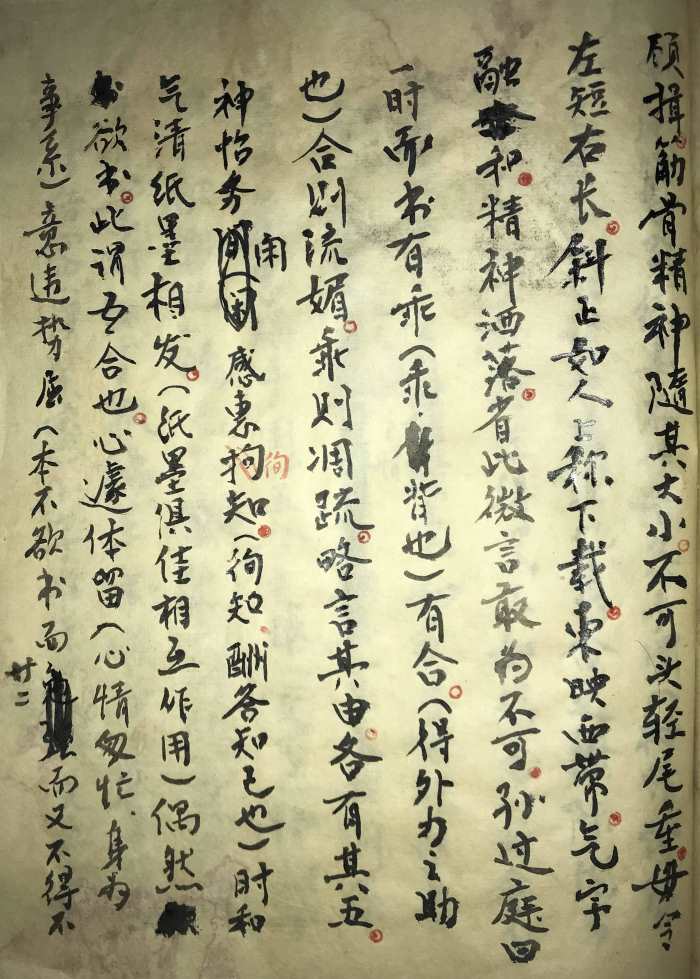 顾揖筋骨精神随其大小不可头轻尾重毋令
左短右长斜正如人上称下载东映西带气宇
融和精神洒落省此微言敢为不可孙过庭曰
一时而书有乖（乖背也）有合（得外力之助
也）合则流媚乖则凋疏略言其由各有其五
神怡务闲感惠徇知（徇知酬答知己也）时和
气清纸墨相发（纸墨俱佳相互作用）偶然
欲书此谓五合也心遽体留（心情匆忙身为
事系）意违势屈（本不欲书而而又不得不
廿二